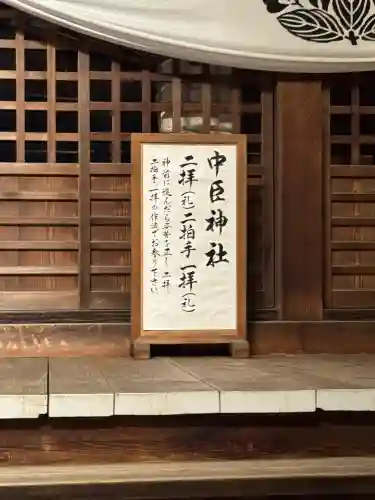 中臣神社
二拝(礼)二拍手一拝(礼)
神前に進んだら姿勢を正し二拝
二拍手一拝の作法でお参り下さい